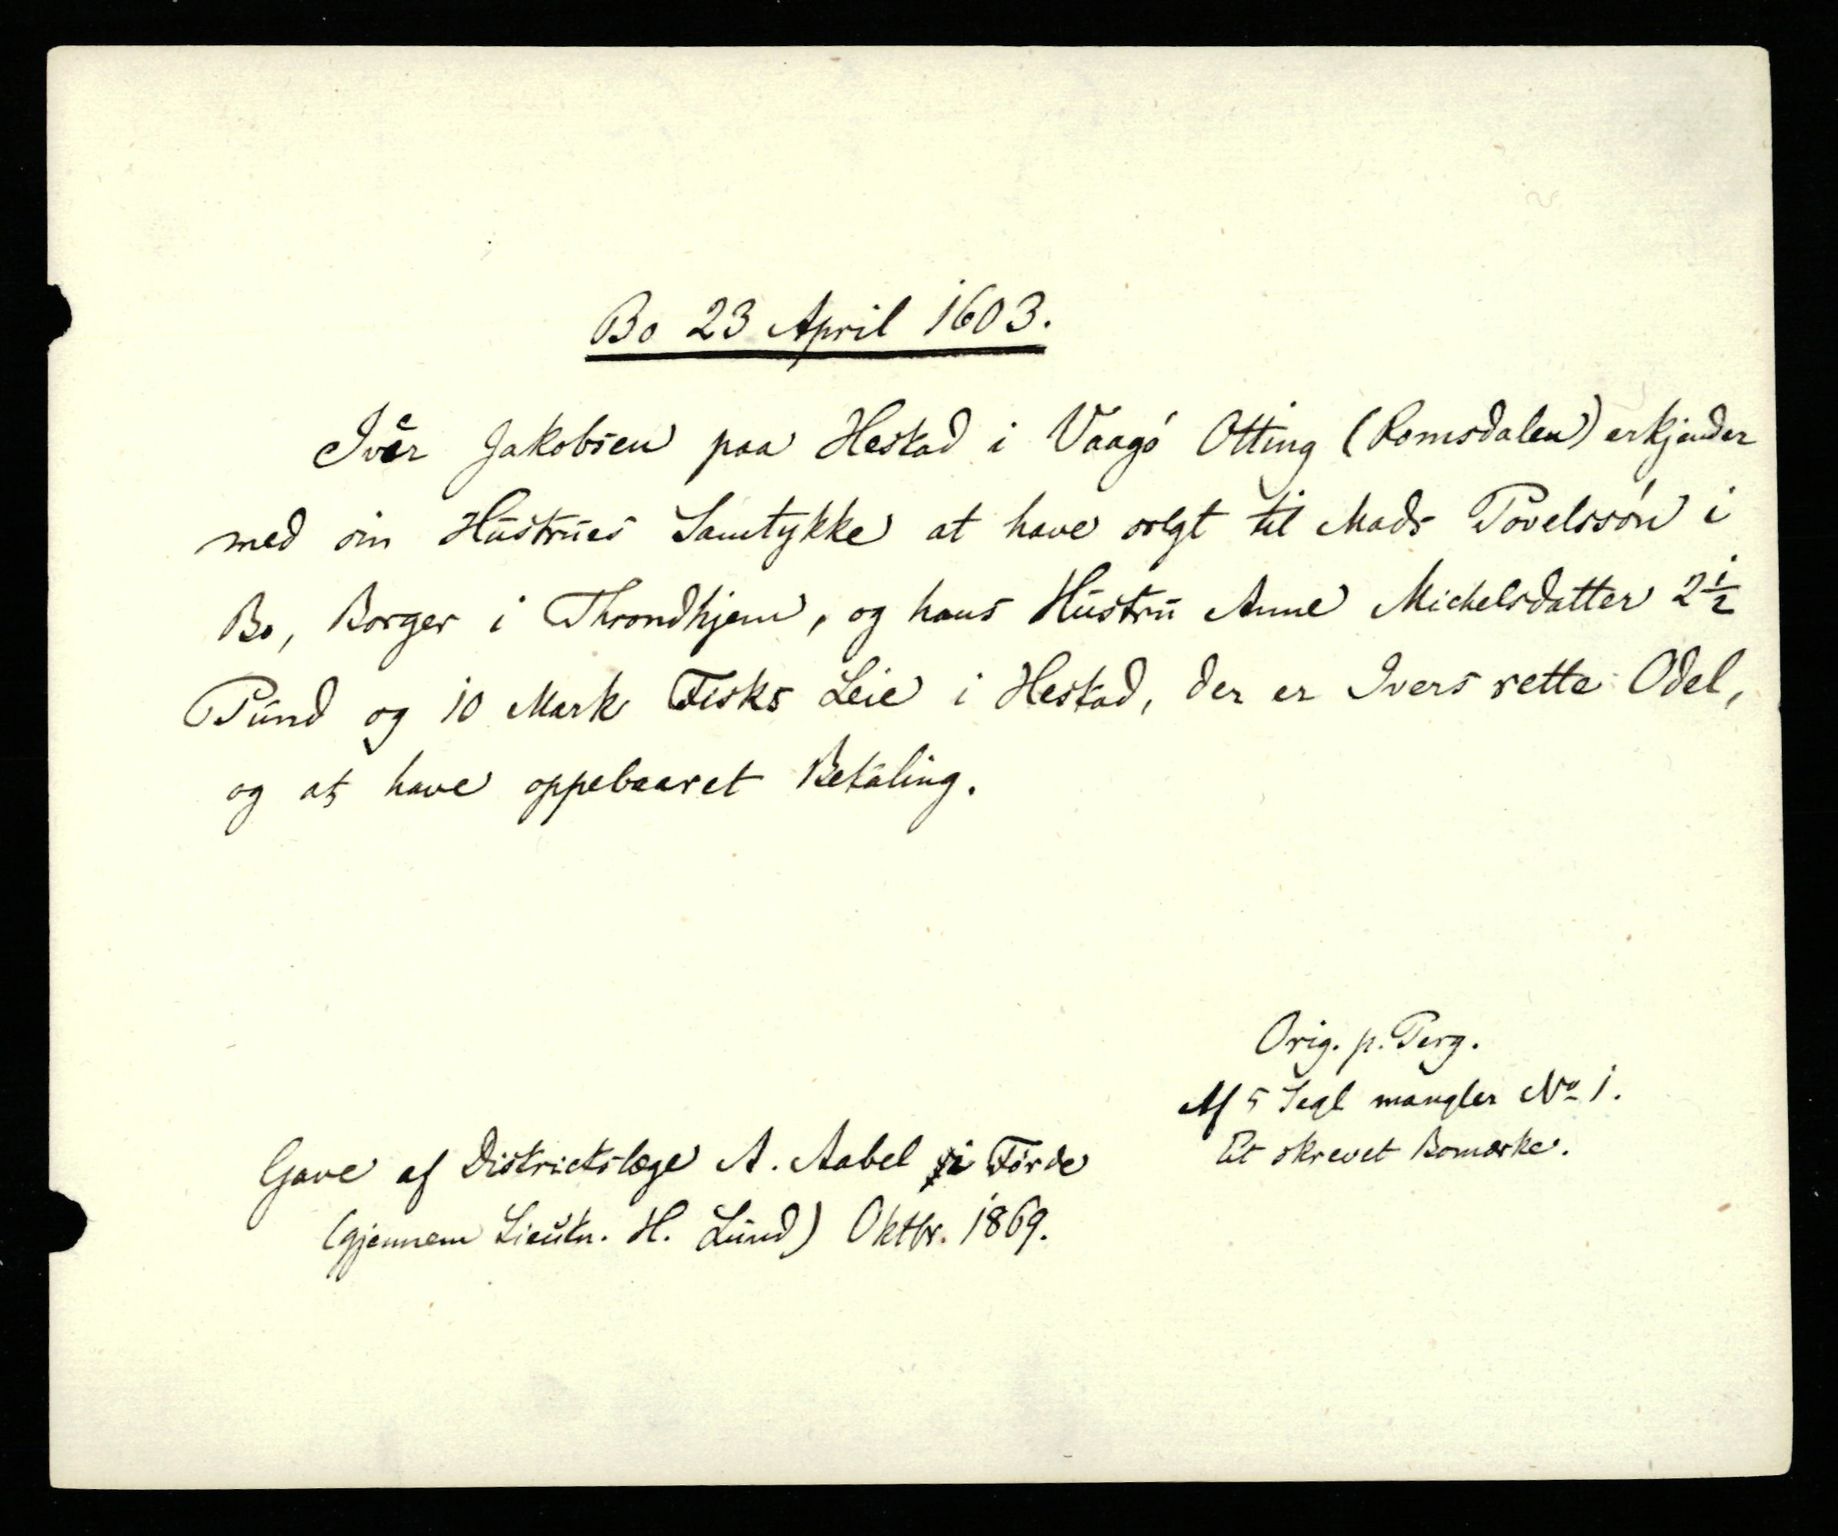 Bo 23 April 1603.
Iver Jakobsen paa Hestad i Vaagø Otting (Romsdalen) erkjender
med sin Hustrues Samtykke at have solgt til Mads Povelssøn i
Bo, Borger i Throndhjem, og hans Hustru Anne Michelsdatter 2 1/2
Pund og 10 Mark Fisks Leie i Hestad, der er Ivers rette Odel,
og at have oppebaaret Betaling.
Orig. p. Perg.
Af 5 Segl mangler No 1.
Et skrevet Bomærke.
Gave af Districtslæge A. Aabel i Førde
(gjennem Lieutn. H. Lund) Oktbr. 1869.